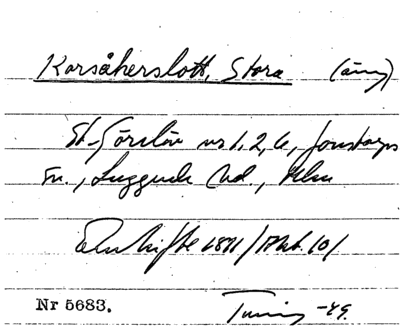 Korsåkerslott, Stora (äng)
St. Görslöv nr 1, 2, 6, Jonstorps
sn., Luggude hd., Mlm
Enskifte 1811 / Akt. 10 /
Nr 5683. Tuning -49.